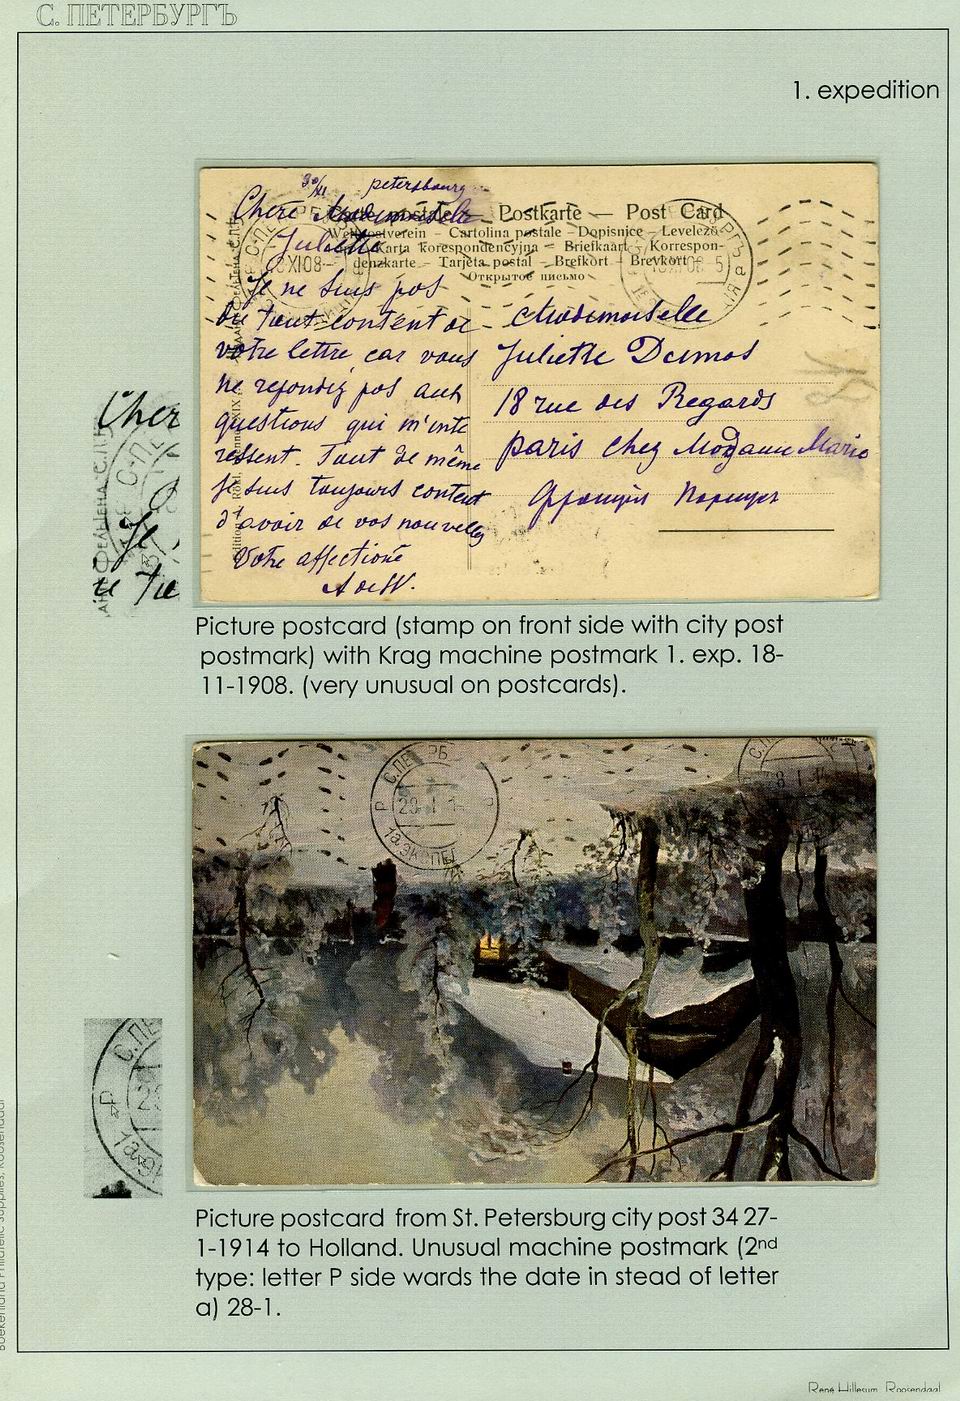 С. ПЕТЕРБУРГЪ
1. expedition
30/XI petersbourg
Chere Mademoiselle
Juliette
Je ne suis pas
du tout content de
votre lettre, car vous
ne repondez pas aux
questions qui m'inte
ressent. Tout de même
je suis toujours content
d'avoir de vos nouvelles
Votre affectioné
A de W.
Postkarte — Post Card
Weltpostverein — Cartolina postale — Dopisnice — Levelező-
Karta korespondencyjna — Briefkaart — Korrespon-
denzkarte — Tarjeta postal — Brefkort — Brevkort
Открытое письмо
Mademoiselle
Juliette Dumas
18 rue des Regards
paris chez Madame Marie
Франция Парижъ
Cher
Je
Picture postcard (stamp on front side with city post
postmark) with Krag machine postmark 1. exp. 18-
11-1908. (very unusual on postcards).
1а ЭКСПЕ
Picture postcard from St. Petersburg city post 34 27-
1-1914 to Holland. Unusual machine postmark (2nd
type: letter P side wards the date in stead of letter
a) 28-1.
Boekenland Philatelic Supplies, Roosendaal
René Hillesum, Roosendaal